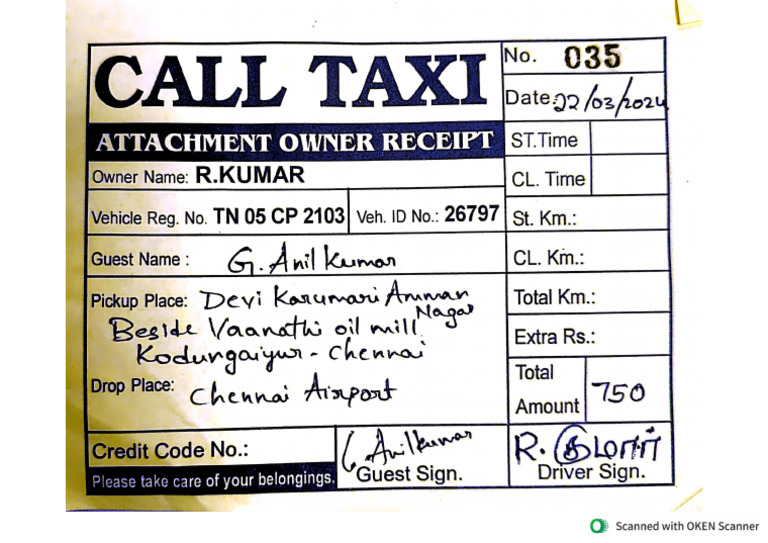 CALL TAXI
No. 035
Date: 22/03/2024
ATTACHMENT OWNER RECEIPT
ST.Time
Owner Name: R.KUMAR
CL. Time
Vehicle Reg. No. TN 05 CP 2103 Veh. ID No.: 26797
St. Km.:
Guest Name : G. Anil Kumar
CL. Km.:
Pickup Place: Devi Karumari Amman
Nagar
Beside Vaanathi oil mill
Kodungaiyur - Chennai
Total Km.:
Extra Rs.:
Drop Place: Chennai Airport
Total
Amount 750
Credit Code No.:
G Anilkumar
Guest Sign.
R. குமார்
Driver Sign.
Please take care of your belongings.
Scanned with OKEN Scanner